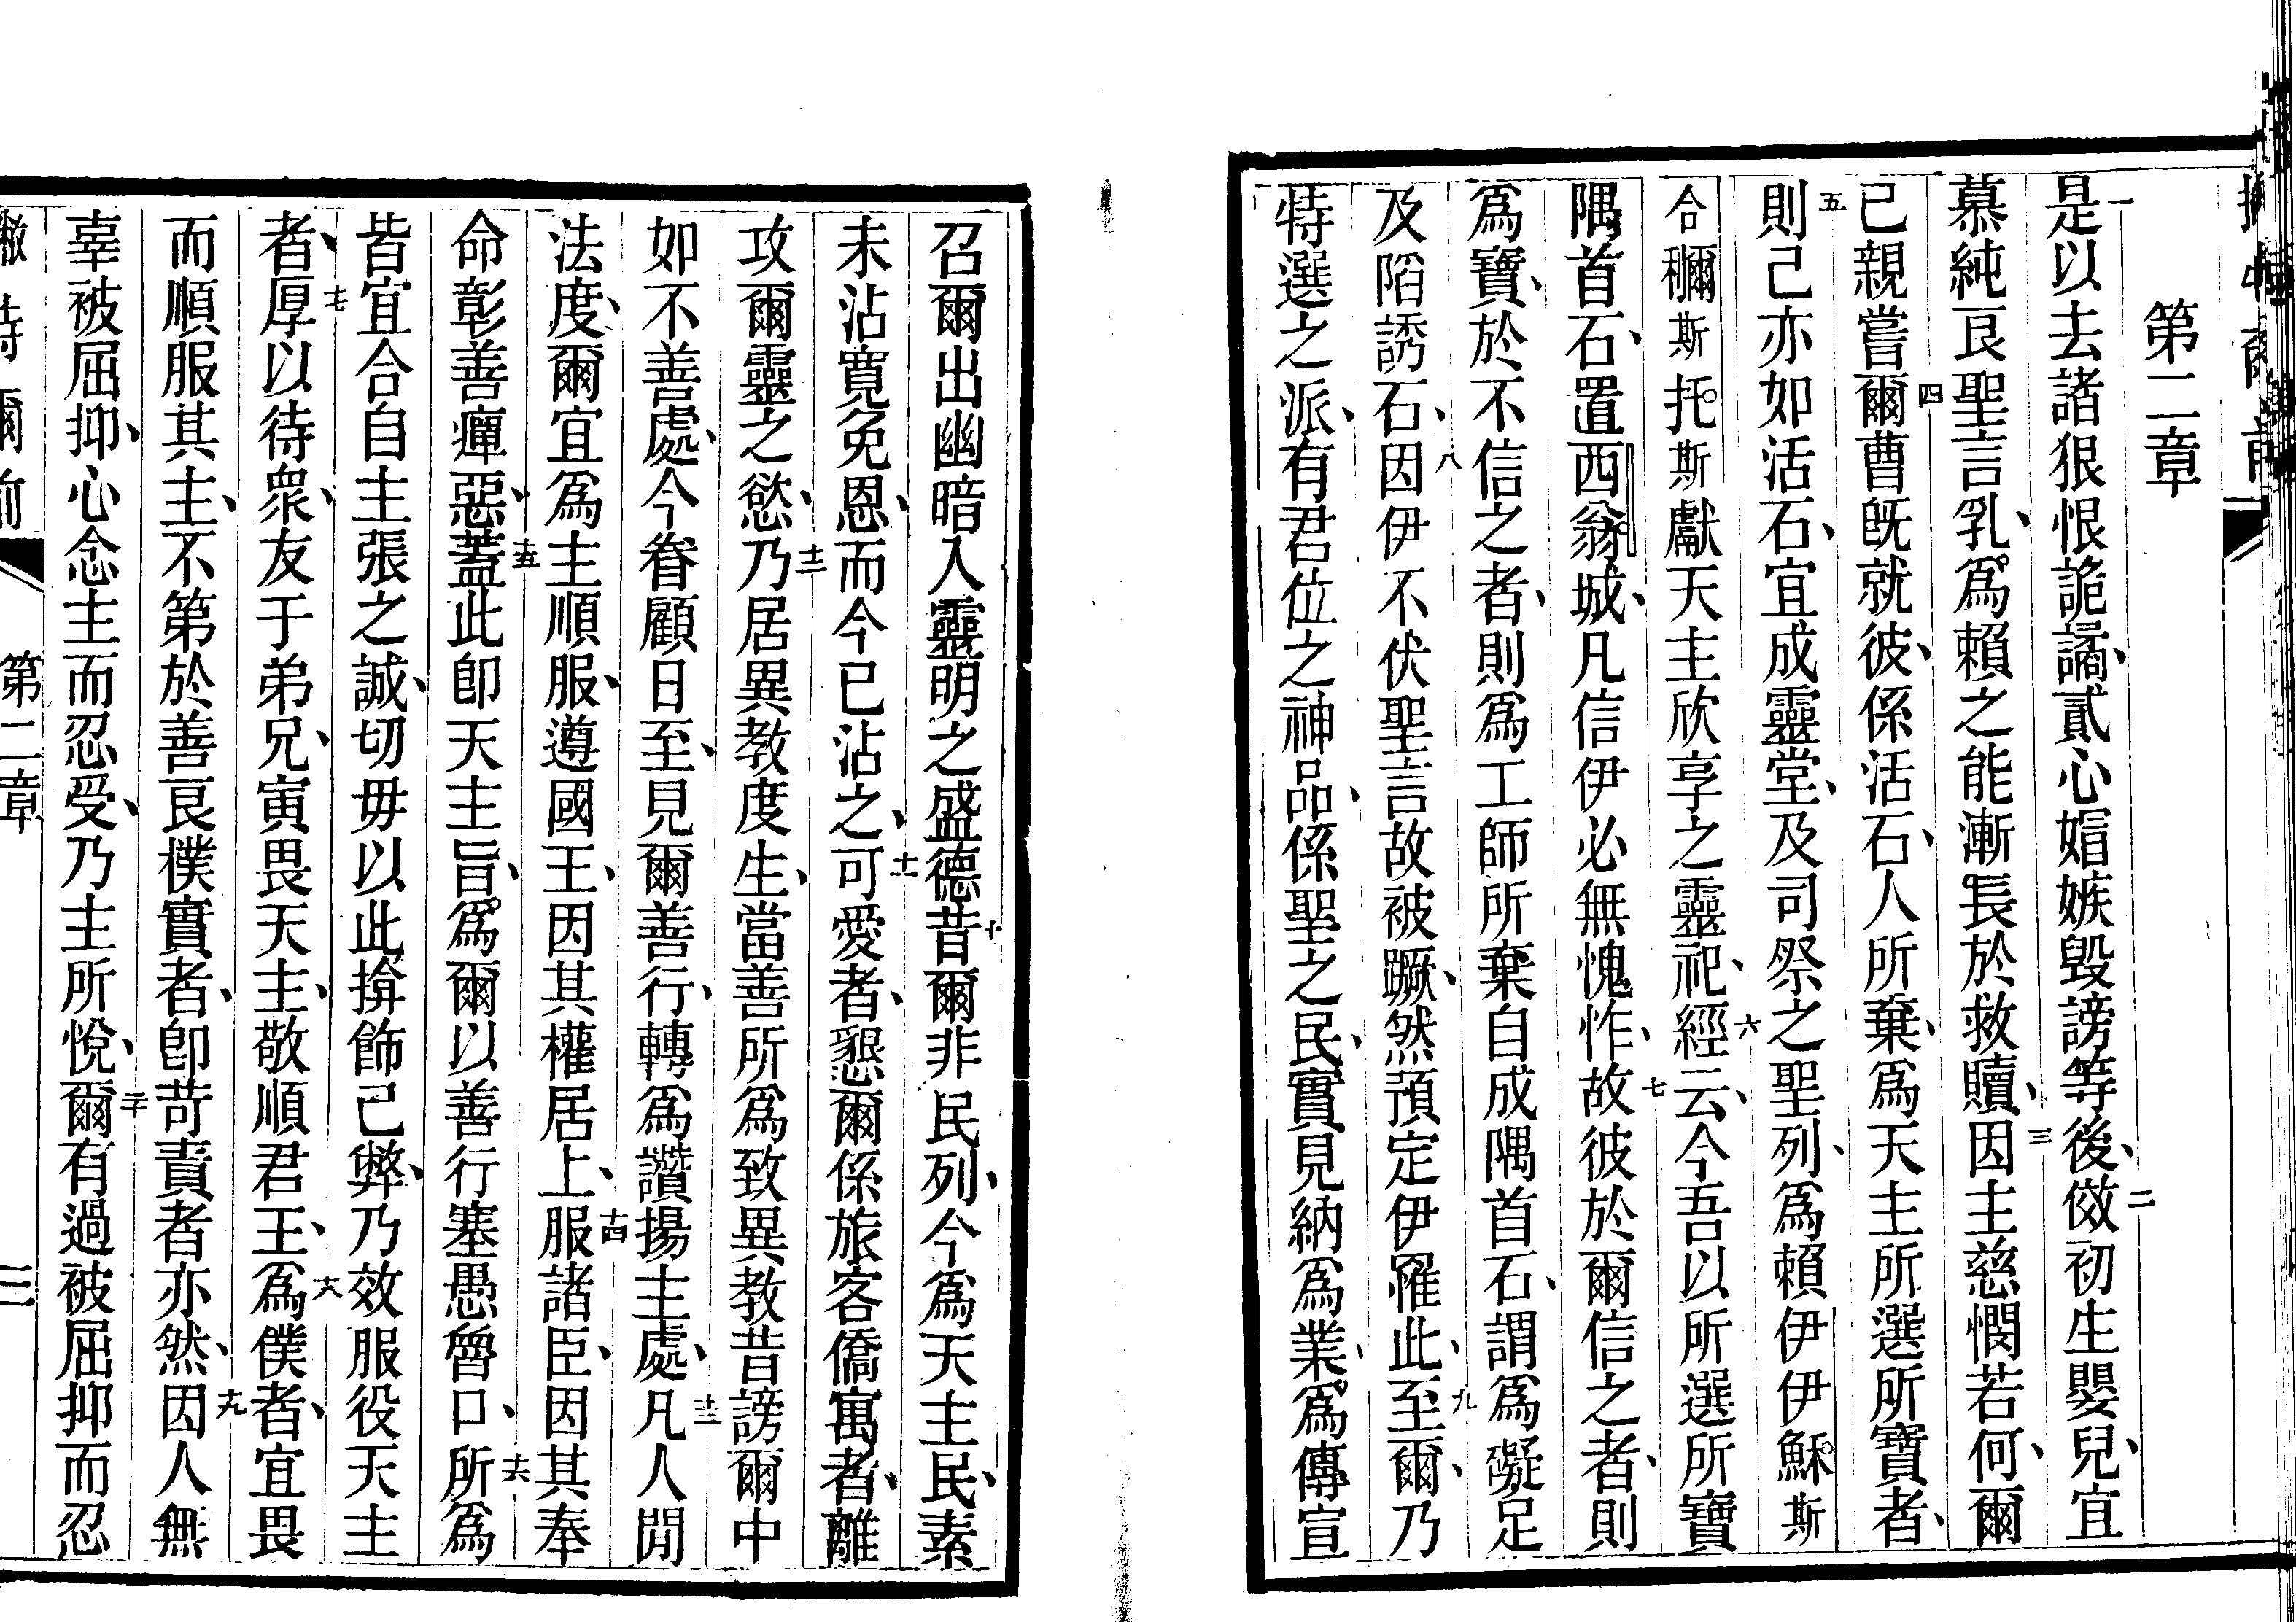 第二章
一是以去諸狠恨詭譎、貳心媢嫉毀謗等後、二傚初生嬰兒、宜
慕純良聖言乳、爲賴之能漸長於救贖、三因主慈憫若何、爾
已親嘗四爾曹旣就彼、係活石、人所棄、爲天主所選所寶者、
五則己亦如活石、宜成靈堂、及司祭之聖列、爲賴伊伊穌斯
合穪斯托斯獻天主欣享之靈祀、六經云、今吾以所選所寶
隅首石、置西翁城、凡信伊必無愧怍、七故彼於爾信之者、則
爲寶、於不信之者、則爲工師所棄自成隅首石、謂爲礙足
及陷誘石、八因伊不伏聖言故被蹶、然預定伊罹此、九至爾、乃
特選之派、有君位之神品、係聖之民、實見納爲業、爲傳宣
召爾出幽暗入靈明之盛德十昔爾非民列、今爲天主民、素
未沾寬免恩、而今已沾之、十一可愛者、懇爾係旅客僑寓者、離
攻爾靈之慾、十二乃居異教度生、當善所爲致異教昔謗爾中
如不善處、今眷顧日至、見爾善行、轉爲讚揚主處、十三凡人閒
法度、爾宜爲主順服、遵國王、因其權居上、十四服諸臣、因其奉
命彰善癉惡、十五蓋此卽天主旨、爲爾以善行塞愚魯口、十六所爲
皆宜合自主張之誠、切毋以此揜飾己弊、乃效服役天主
者、十七厚以待衆、友于弟兄、寅畏天主、敬順君王、十八爲僕者、宜畏
而順服其主、不第於善良樸實者、卽苛責者亦然、十九因人無
辜被屈抑、心念主而忍受、乃主所悅、二十爾有過被屈抑而忍
第二章
三